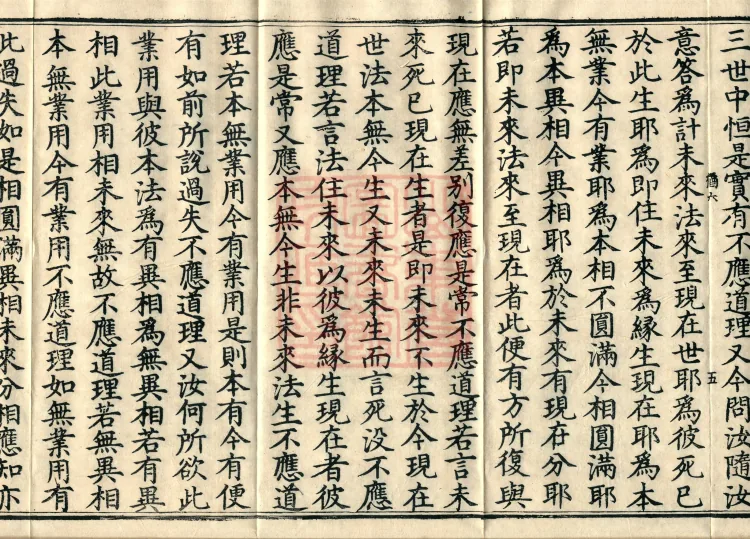 三世中恒是實有不應道理又今問汝隨汝
意答爲計未來法來至現在世耶爲彼死已
於此生耶爲即住未來爲緣生現在耶爲本
無業今有業耶爲本相不圓滿今相圓滿耶
爲本異相今異相耶爲於未來有現在分耶
若即未來法來至現在者此便有方所復與
現在應無差別復應是常不應道理若言未
來死已現在生者是即未來不生於今現在
世法本無今生又未來未生而言死沒不應
道理若言法住未來以彼爲緣生現在者彼
應是常又應本無今生非未來法生不應道
理若本無業用今有業用是則本有今有便
有如前所說過失不應道理又汝何所欲此
業用與彼本法爲有異相爲無異相若有異
相此業用相未來無故不應道理若無異相
本無業用今有業用不應道理如無業用有
此過失如是相圓滿異相未來分相應知亦
五